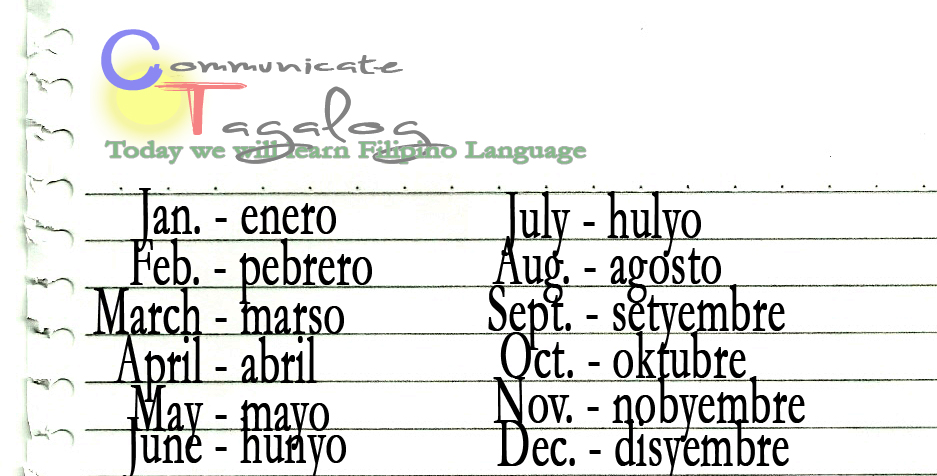 Communicate
Tagalog
Today we will learn Filipino Language
Jan. - enero
Feb. - pebrero
March - marso
April - abril
May - mayo
June - hunyo
July - hulyo
Aug. - agosto
Sept. - setyembre
Oct. - oktubre
Nov. - nobyembre
Dec. - disyembre